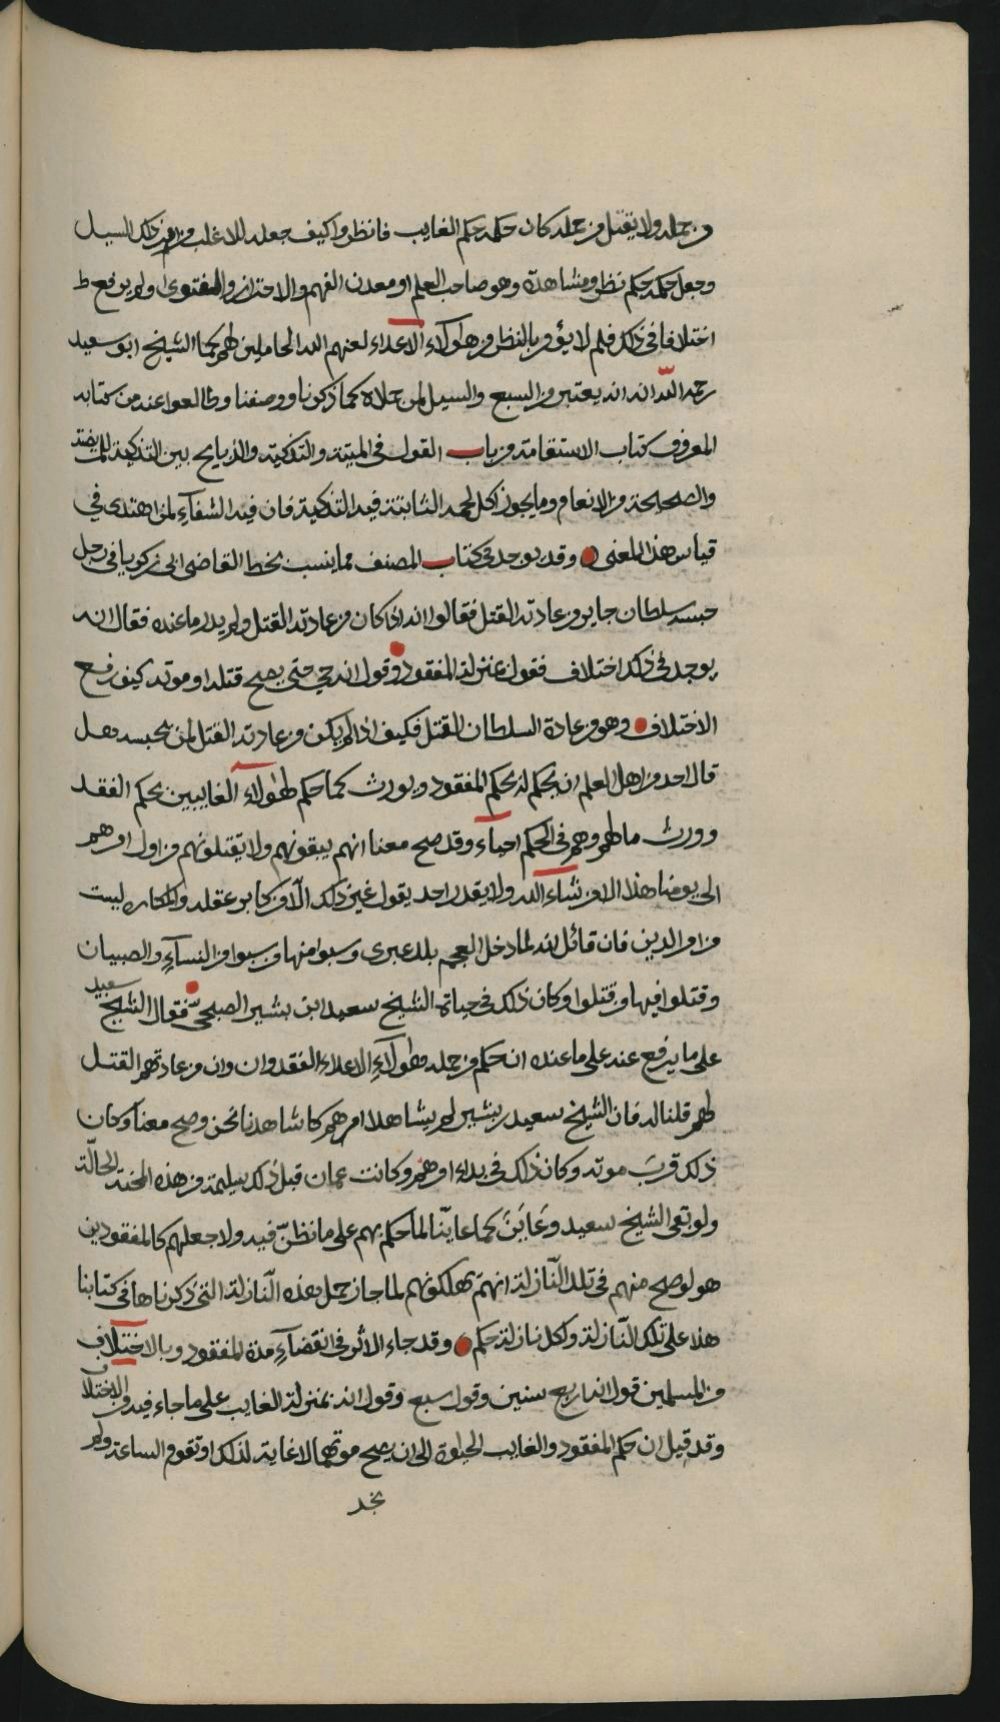 من حمله ولا يقتل من حمله كان حكمه حكم الغايب فانظروا كيف جعله للاغلب من امر ذلك السيل
وجعل حكمه حكم نظر ومشاهدة وهو صاحب العلم او معدن الفهم والاحتراز والفتوى ولم يرفع ط
اختلافا في ذلك فلم لا يؤمر بالنظر من هاولاء الاعداء لعنهم الله الحاملين لهم كما الشيخ ابو سعيد
رحمه الله انه انه يعتبر من السبع والسيل لمن حملاه كما ذكرنا ووصفنا وطالعوا عنه من كتابه
المعروف كتاب الاستقامة من باب القول في الميتة والتذكية والذبايح بين التذكية للمريضة
والصحيحة من الانعام وما يجوز اكل لحمه الثابتة فيه التذكية فان فيه الشفآء لمن اهتدى في
قياس هذا المعنى وقد يوجد في كتاب المصنف مما ينسب بخط القاضي ابي زكريا في رجل
حبسه سلطان جاير من عادته القتل فقالوا انه اذا كان من عادته القتل ولم يدر ما عنده فقال انه
يوجد في ذلك اختلاف فقول بمنزلة المفقود وقول انه حي حتى يصح قتله او موته كيف رفع
الاختلاف وهو من عادة السلطان القتل فكيف اذا لم يكن من عادته القتل لمن يحبسه وهل
قال احد من اهل العلم انه يحكم له بحكم المفقود ويورث كما حكم لهولاء الغايبين بحكم الفقد
وورث ما لهم وهم في الحكم احياء وقد صح معنا انهم يبقونهم ولا يقتلونهم من اول امرهم
الى يومنا هذا الا من شاء الله ولا يقدر احد يقول غير ذلك الا من كابر عقله والمكابره ليست
من امر الدين فان قائل انه لما دخل العجم بلد عبرى وسبوا منها من سبوا من النسآء والصبيان
وقتلوا فيها من قتلوا وكان ذلك في حياة الشيخ سعيد ابن بشير الصبحي فقال الشيخ سعيد
على ما يرفع عنه على ما عنده ان حكم من حمله هولآء الاعداء الفقد وان وان من عادتهم القتل
لهم قلنا له فان الشيخ سعيد بن بشير لم يشاهد امرهم كما شاهدنا نحن وصح معنا وكان
ذلك قرب موته وكان ذلك في بداء امرهم وكانت عمان قبل ذلك سليمة من هذه المحنة الحالّة
ولو بقى الشيخ سعيد وعاين كما عاينّا لما حكم بهم على ما نظنّ فيه ولا جعلهم كالمفقودين
هو لو صح منهم في تلك النّازلة انهم يهلكونهم لما جاز حمل هذه النّازلة التي ذكرناها في كتابنا
هذا على تلك النّازلة ولكل نازلة حكم وقد جاء الاثر في انقضآء مدة المفقود وبالاختلاف
من المسلمين قول انه اربع سنين وقول سبع وقول انه بمنزلة الغايب على ما جاء فيه من الاختلاف
وقد قيل ان حكم المفقود والغايب الحيوة الى ان يصح موتهما لا غاية لذلك او تقوم الساعة ولم
نجد